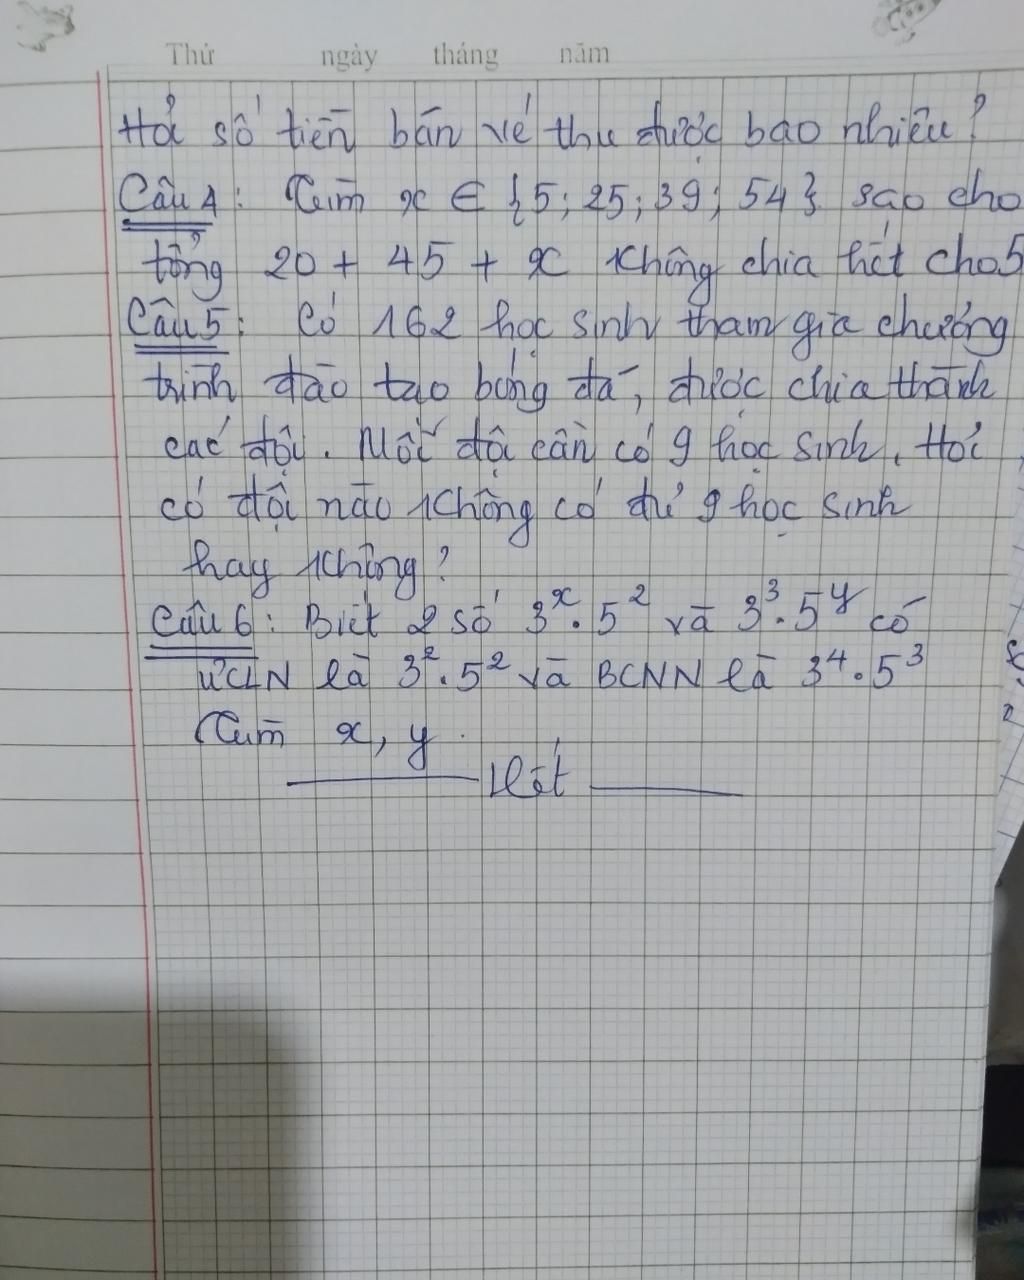 Thứ ngày tháng năm
Hỏi số tiền bán vé thu được bao nhiêu?
Câu 4: Tìm x ∈ {5; 25; 39; 54} sao cho
tổng 20 + 45 + x không chia hết cho 5
Câu 5: Có 162 học sinh tham gia chương
trình đào tạo bóng đá, được chia thành
các đội. Mỗi đội cần có 9 học sinh. Hỏi
có đội nào không có đủ 9 học sinh
hay không?
Câu 6: Biết 2 số 3ˣ . 5² và 3³ . 5ʸ có
ƯCLN là 3² . 5² và BCNN là 3⁴ . 5³
Tìm x, y.
Hết